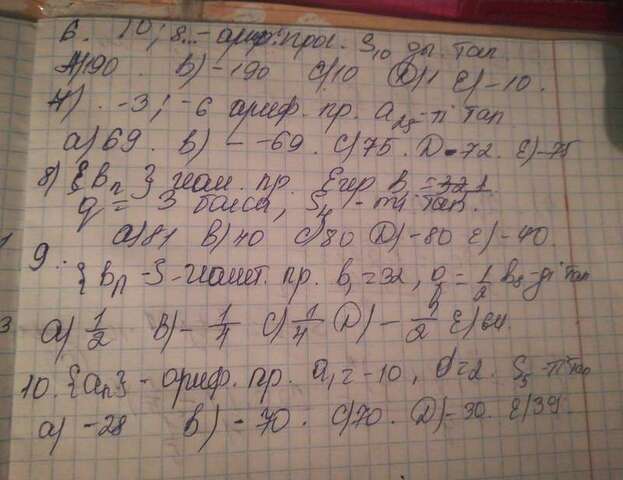 6. 10; 8... - ариф. прог. S10 ды тап
A) 190 B) -190 C) 10 D) 1 E) -10.
7). -3; -6 ариф. пр. a25-ті тап
a) 69. B) --69. C) 75. D -72. E) -75
8) {bn} геом. пр. Егер b1 =
q = 3 болса, S4 - ті тап.
a) 81 B) 40 C) 80 D) -80 E) -40.
9. {bn} - геомет. пр. b1 = 32, q = 1/2 b8-ді тап
a) 1/2 B) - 1/4 C) 1/4 D) - 1/2 E) 64.
10. {an} - ариф. пр. a1 = -10, d=2. S5 -ті тап
a) -28 B) -70. C) 70. D) -30. E) 39